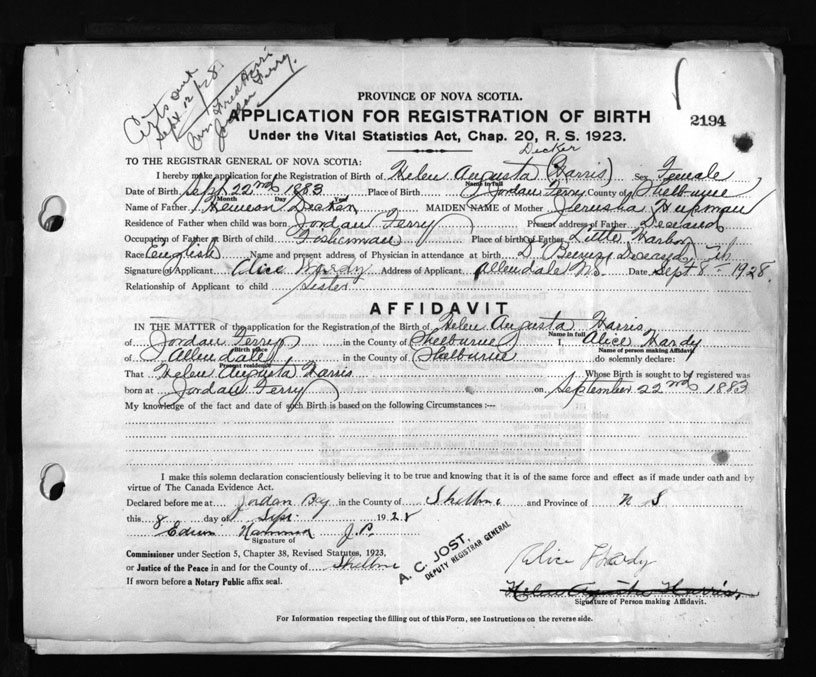 Cert. sent
Sept 12/28.
Mrs Fred Harris
Jordan Ferry.
PROVINCE OF NOVA SCOTIA.
APPLICATION FOR REGISTRATION OF BIRTH
2194
Under the Vital Statistics Act, Chap. 20, R. S. 1923.
Decker
TO THE REGISTRAR GENERAL OF NOVA SCOTIA:
I hereby make application for the Registration of Birth of Helen Augusta (Harris) Sex Female
Name in full
Date of Birth Sept 22nd 1883 Place of Birth Jordan Ferry County of Shelburne
Month Day Year
Name of Father Decker MAIDEN NAME of Mother Jerusha Hupman
Residence of Father when child was born Jordan Ferry Present address of Father Deceased
Occupation of Father at Birth of child Fisherman Place of birth of Father Little Harbor
Race English Name and present address of Physician in attendance at birth D Deceased
Signature of Applicant Alice Hardy Address of Applicant Allendale NS. Date Sept 8 - 1928.
Relationship of Applicant to child Sister
AFFIDAVIT
IN THE MATTER of the application for the Registration of the Birth of Helen Augusta Harris
Name in full
of Jordan Ferry in the County of Shelburne I, Alice Hardy
Birth place Name of person making Affidavit
of Allendale in the County of Shelburne do solemnly declare:
Present residence
That Helen Augusta Harris Whose Birth is sought to be registered was
born at Jordan Ferry on September 22nd 1883
My knowledge of the fact and date of such Birth is based on the following Circumstances :—
I make this solemn declaration conscientiously believing it to be true and knowing that it is of the same force and effect as if made under oath and by
virtue of The Canada Evidence Act.
Declared before me at Jordan Bay in the County of Shelburne and Province of N S
this 8 day of Sept. 1928
Edwin J.P.
Signature of
Commissioner under Section 5, Chapter 38, Revised Statutes, 1923,
or Justice of the Peace in and for the County of Shelburne
If sworn before a Notary Public affix seal.
A. C. JOST,
DEPUTY REGISTRAR GENERAL
Alice Hardy
Helen Augusta Harris,
Signature of Person making Affidavit.
For Information respecting the filling out of this Form, see Instructions on the reverse side.